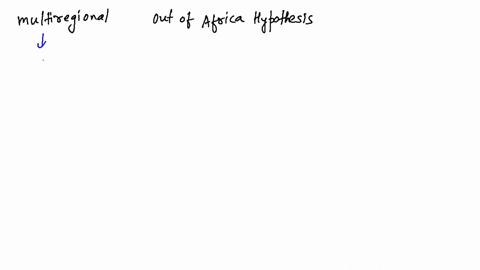 multiregional out of Africa Hypothesis